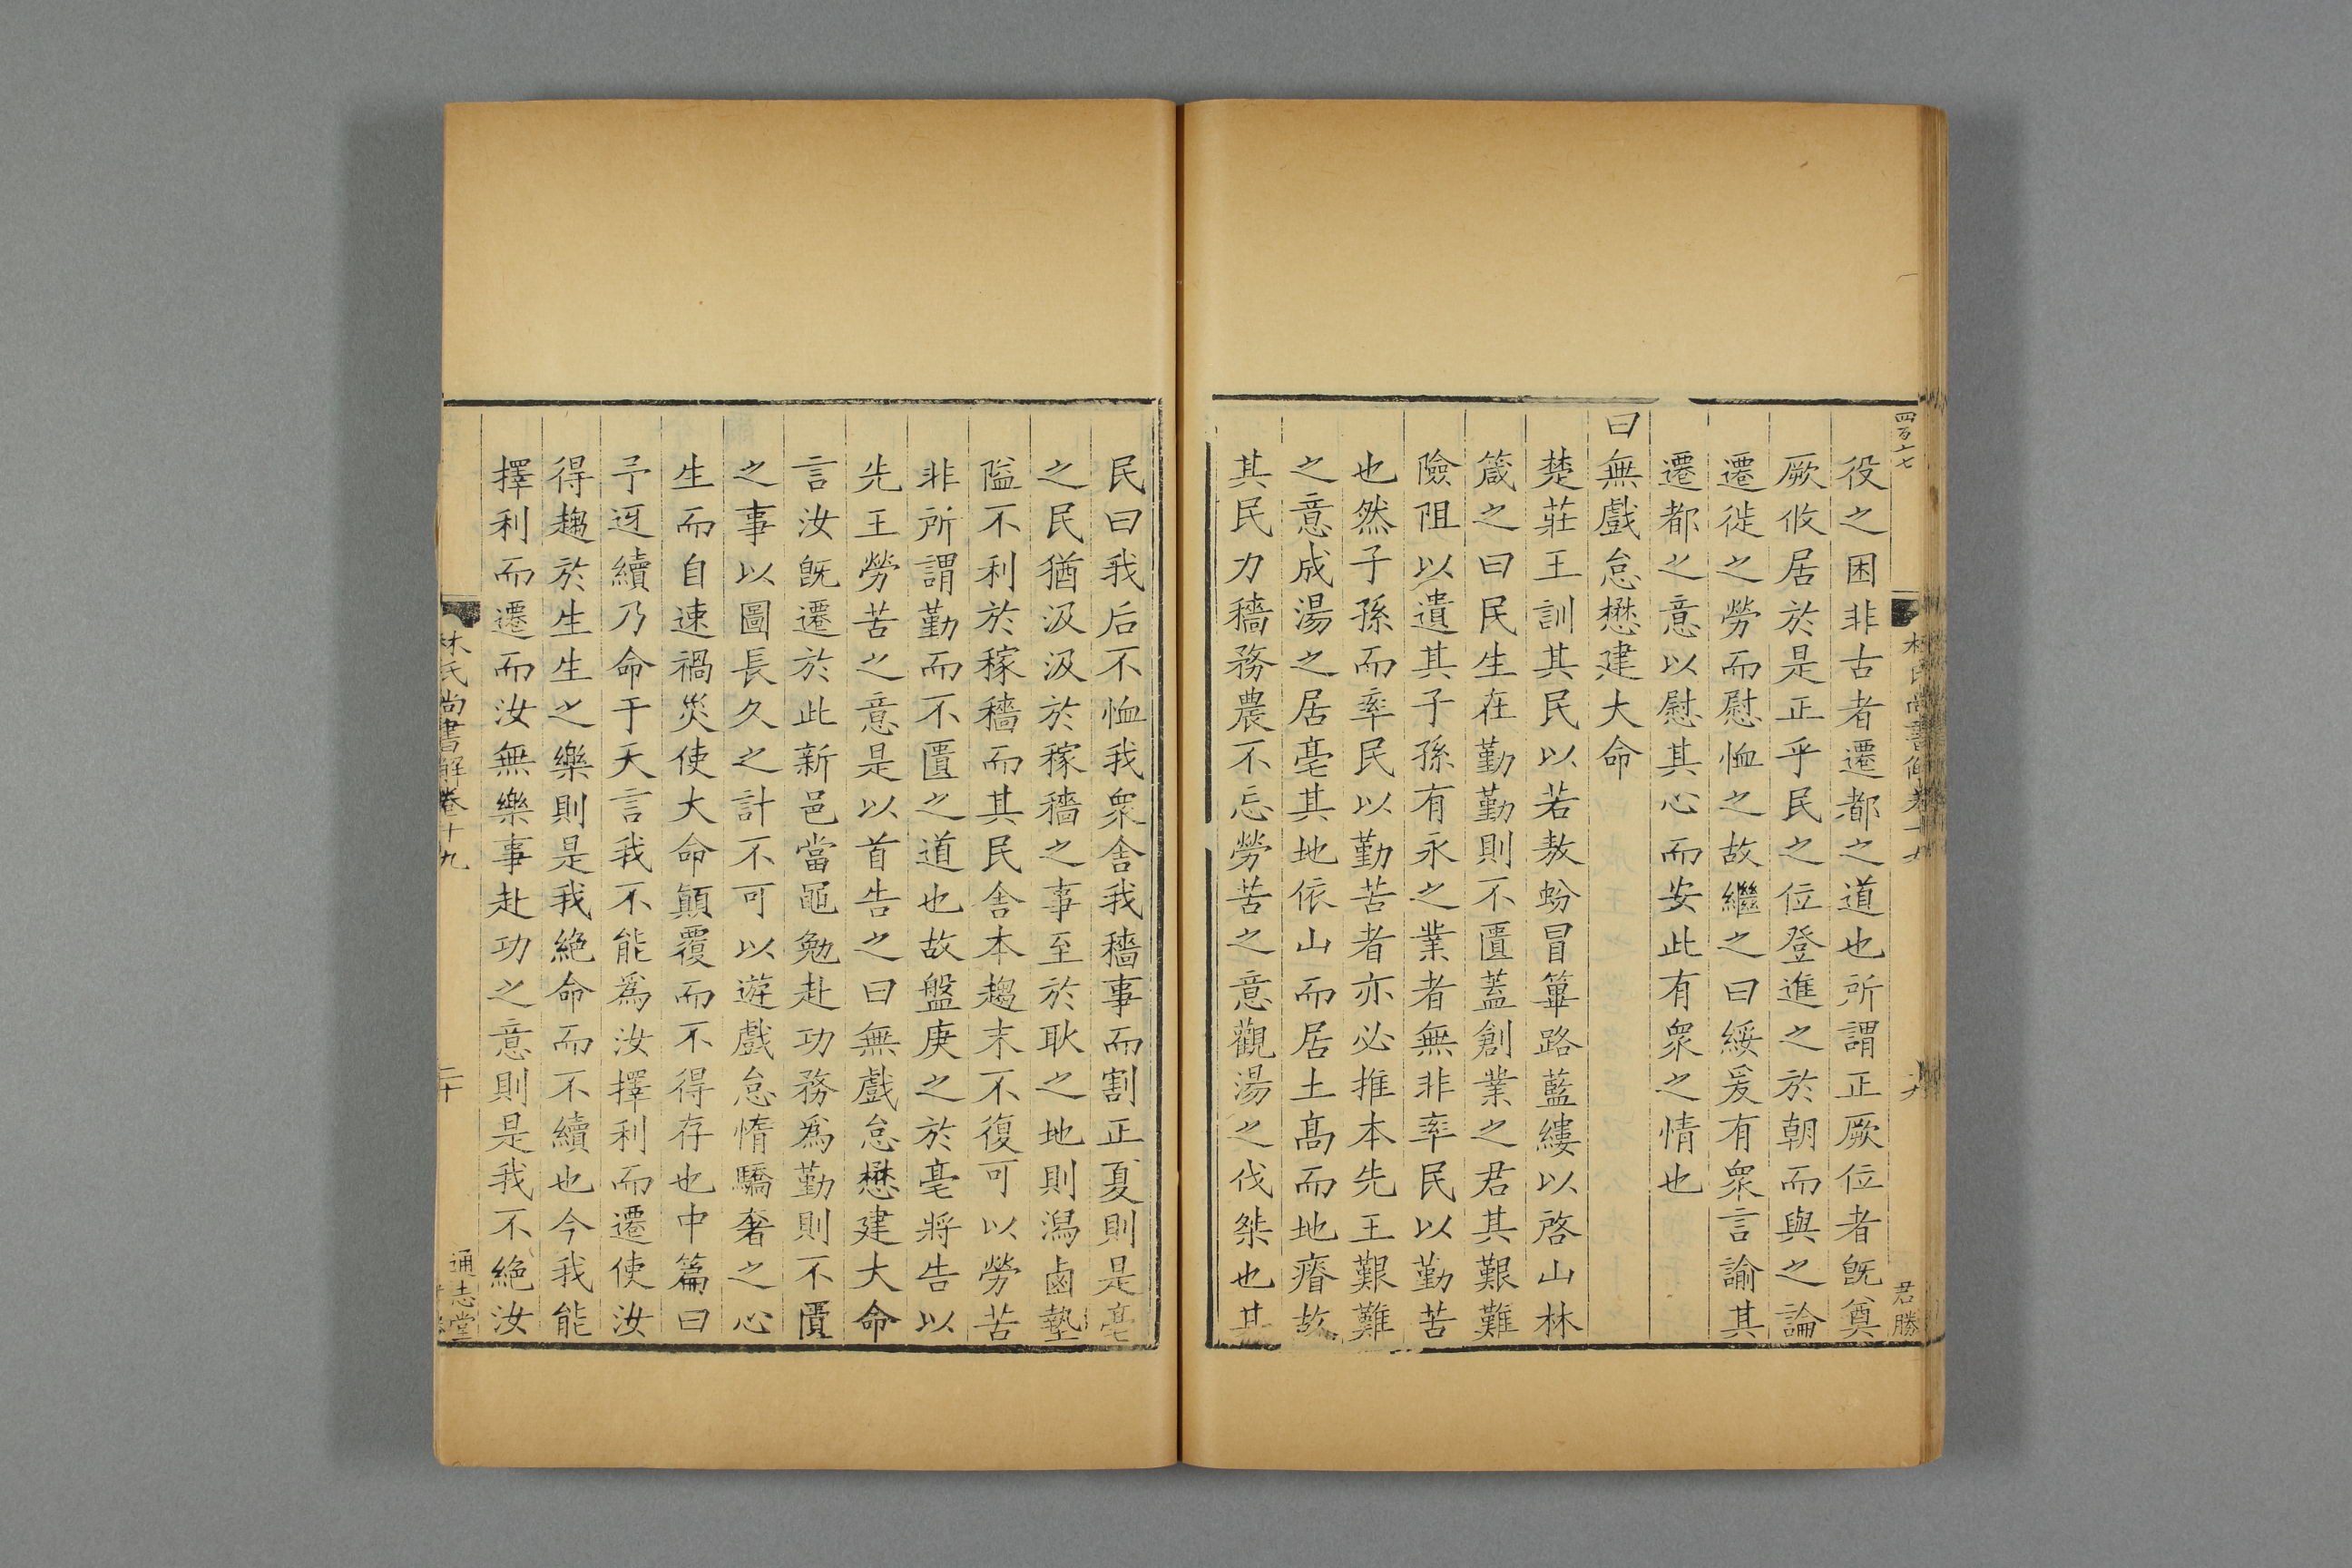 四百六七
林氏尚書解卷十九
十九
君勝
役之困非古者遷都之道也所謂正厥位者旣奠
厥攸居於是正乎民之位登進之於朝而與之論
遷徙之勞而慰恤之故繼之曰綏爰有衆言諭其
遷都之意以慰其心而安此有衆之情也
曰無戲怠懋建大命
楚莊王訓其民以若敖蚡冒篳路藍縷以啓山林
箴之曰民生在勤勤則不匱蓋創業之君其艱難
險阻以遺其子孫有永之業者無非率民以勤苦
也然子孫而率民以勤苦者亦必推本先王艱難
之意成湯之居亳其地依山而居土髙而地瘠故
其民力穡務農不忘勞苦之意觀湯之伐桀也其
民曰我后不恤我衆舍我穡事而割正夏則是亳
之民猶汲汲於稼穡之事至於耿之地則潟鹵墊
隘不利於稼穡而其民舍本趨末不復可以勞苦
非所謂勤而不匱之道也故盤庚之於亳將告以
先王勞苦之意是以首告之曰無戲怠懋建大命
言汝旣遷於此新邑當黽勉赴功務爲勤則不匱
之事以圖長久之計不可以遊戲怠惰驕奢之心
生而自速禍災使大命顛覆而不得存也中篇曰
予迓續乃命于天言我不能爲汝擇利而遷使汝
得趨於生生之樂則是我絶命而不續也今我能
擇利而遷而汝無樂事赴功之意則是我不絶汝
林氏尚書解卷十九
二十
通志堂